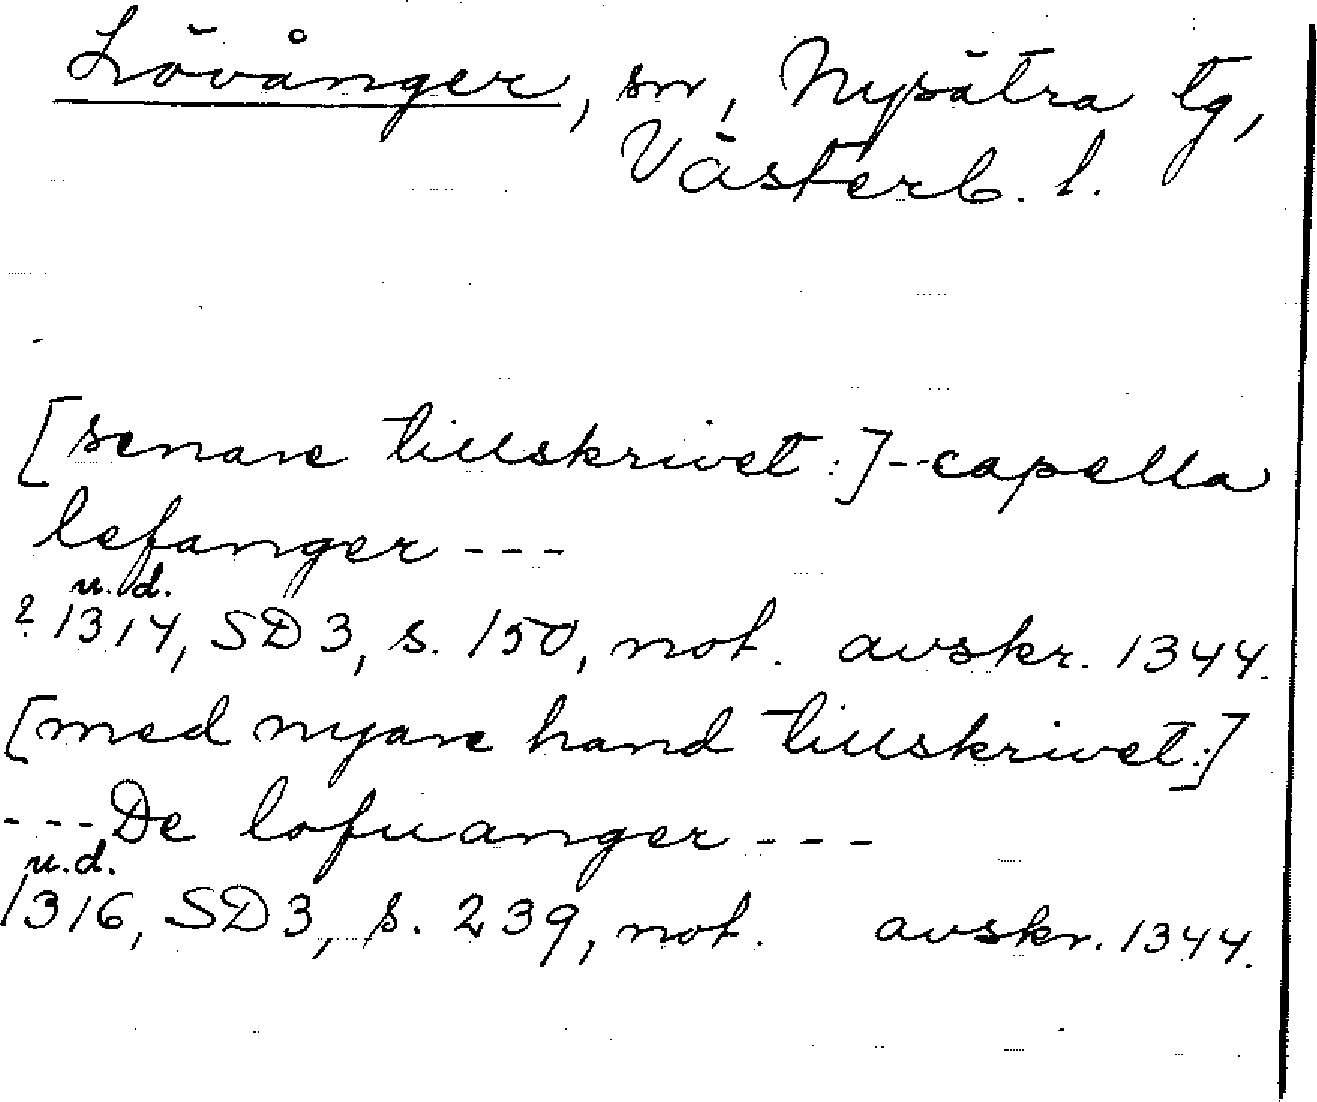 Lövånger, sn, Nysätra tg,
Västerb. l.
[senare tillskrivet:]--capella
lefanger ---
u.d.
? 1314, SD3, s. 150, not. avskr. 1344.
[med nyare hand tillskrivet:]
---De lofuanger ---
u.d.
1316, SD3, s. 239, not. avskr. 1344.